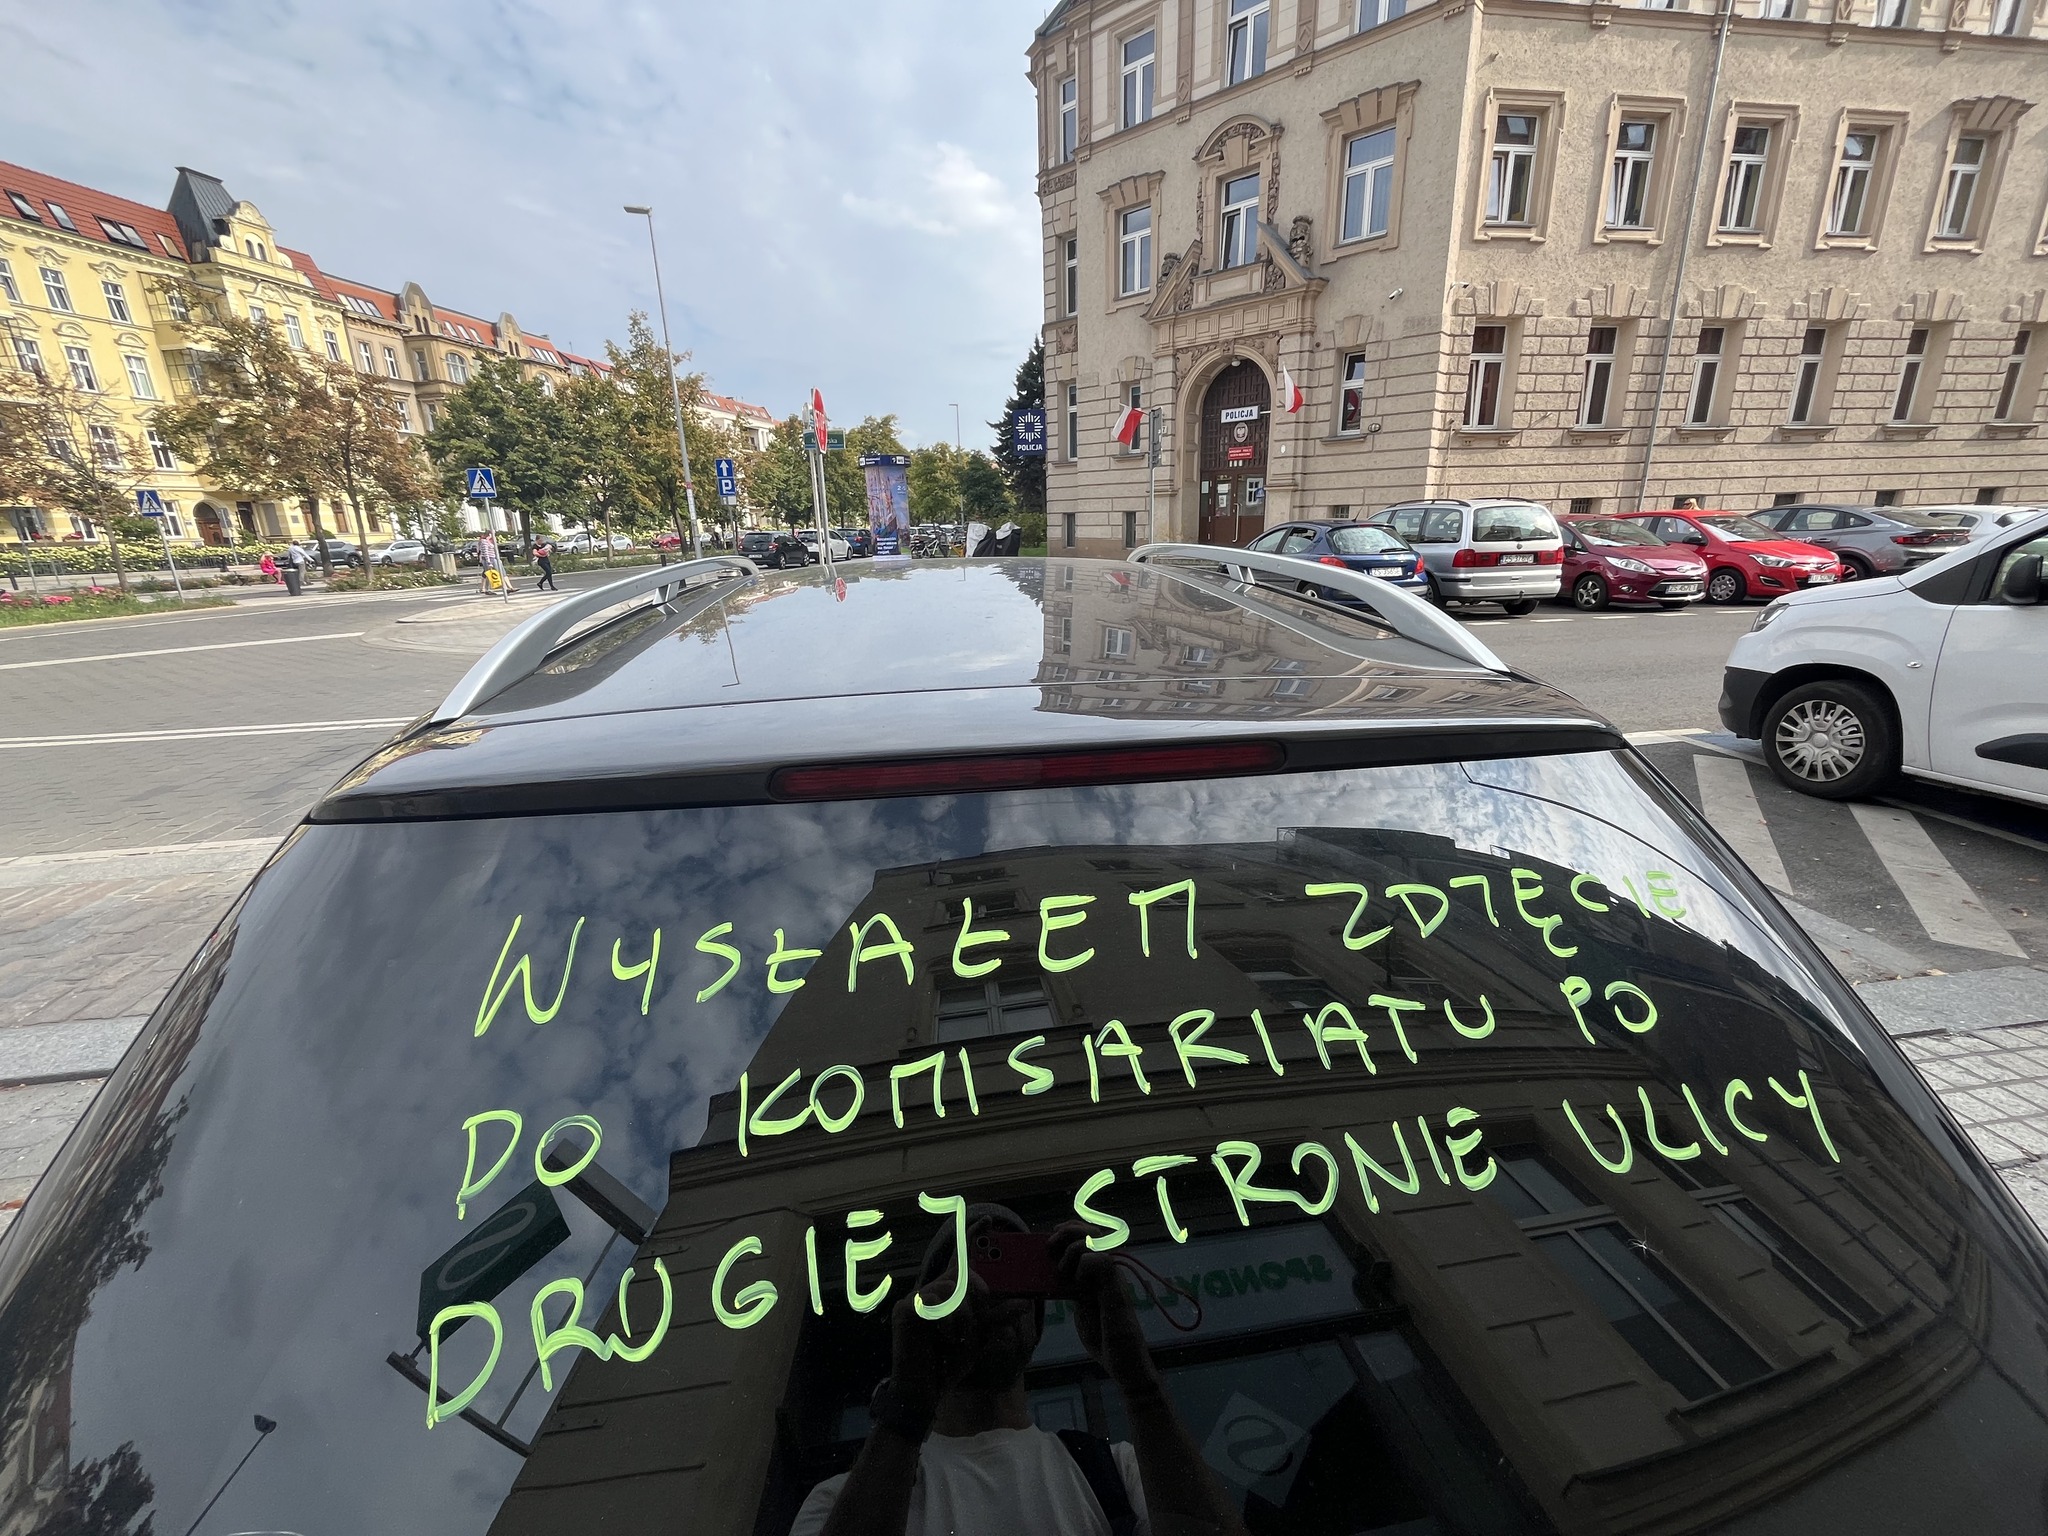 POLICJA
POLICJA
P
WYSŁAŁEM ZDJĘCIE
DO KOMISARIATU PO
DRUGIEJ STRONIE ULICY